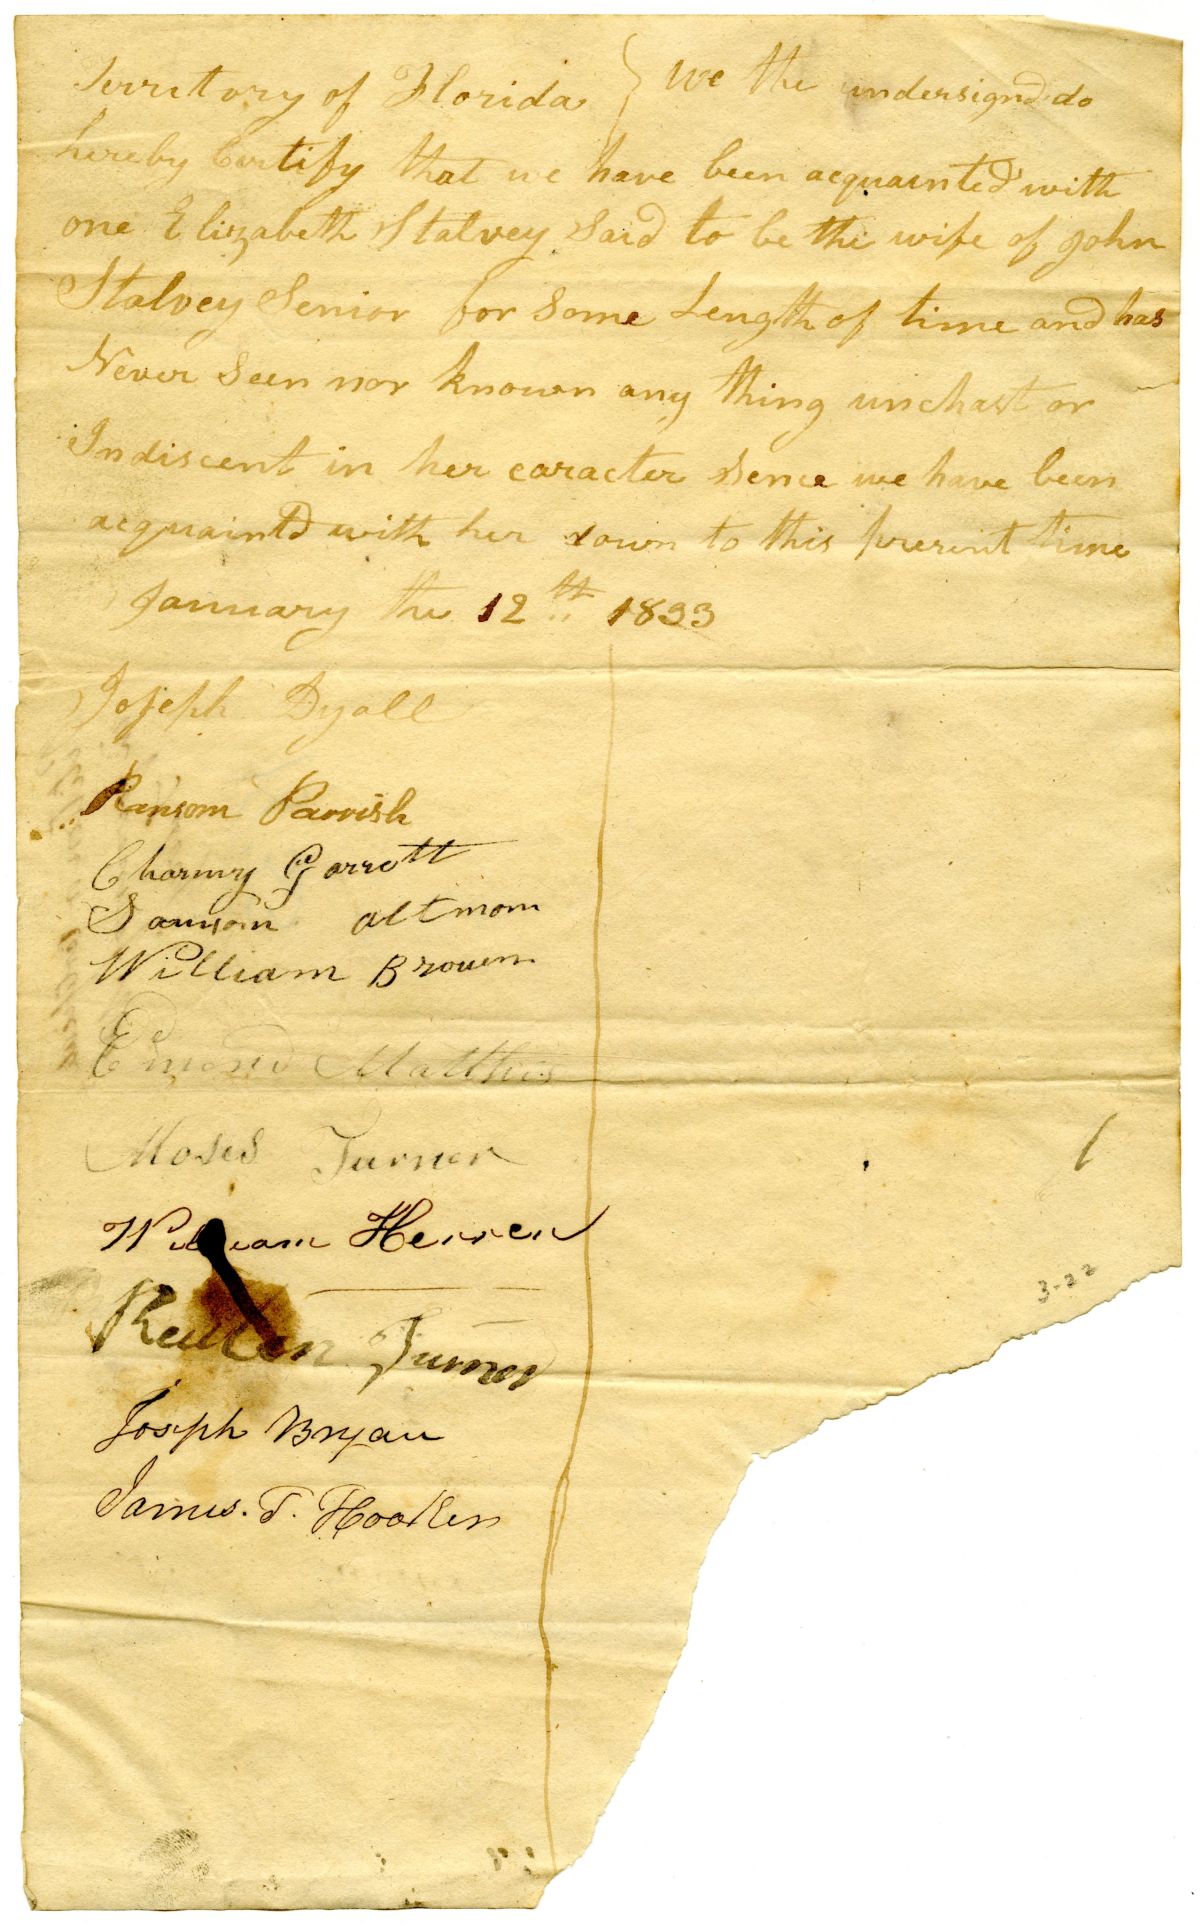 Territory of Florida } We the undersignd do
hereby Certify that we have been acquainted with
one Elizabeth Stalvey Said to be the wife of John
Stalvey Senior for Some Length of time and has
Never Seen nor known any thing unchast or
Indiscent in her caracter Sence we have been
acquaintd with her down to this present time
January the 12th 1833
Joseph Dyall
Ransom Parrish
Charmry Garrott
Samsom altmom
William Brown
Edmond Matthis
Moses Turner
William Herren
Reuben Turner
Joseph Bryan
James. T. Hooker
3-22